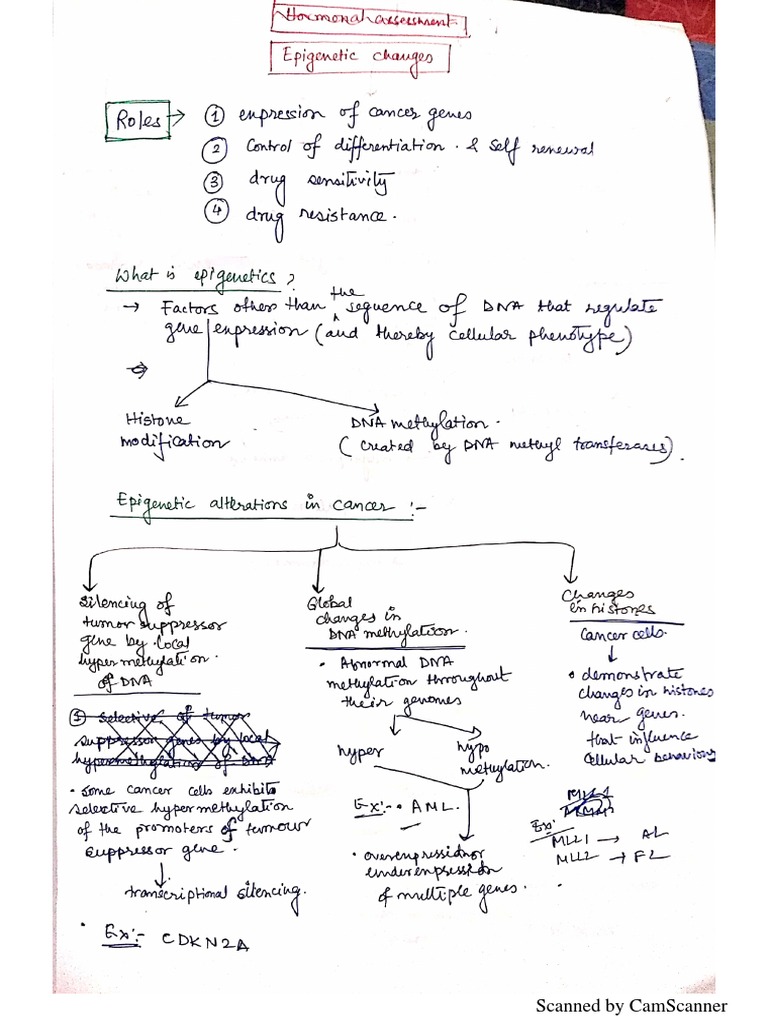 Hormonal assessment
Epigenetic changes
Roles → ① expression of cancer genes
② Control of differentiation. & self renewal
③ drug sensitivity
④ drug resistance.
What is epigenetics?
→ Factors other than the sequence of DNA that regulate
gene expression (and thereby cellular phenotype)
Histone
modification
DNA methylation.
(created by DNA methyl transferases).
Epigenetic alterations in cancer :-
Silencing of
tumor suppressor
gene by local
hyper methylation
of DNA
① Selective of tumor
suppressor genes by local
hypermethylation of DNA
• Some cancer cells exhibits
selective hypermethylation
of the promoters of tumour
suppressor gene.
↓
transcriptional silencing.
• Ex:- CDKN2A
Global
changes in
DNA methylation.
• Abnormal DNA
methylation throughout
their genomes
hyper
hypo
methylation.
Ex:- • AML.
• overexpression or
underexpression
of multiple genes.
Changes
in histones
Cancer cells.
↓
• demonstrate
changes in histones
near genes.
that influence
cellular behaviour
Ex:
MLL1 → AL
MLL2 → FL
Scanned by CamScanner